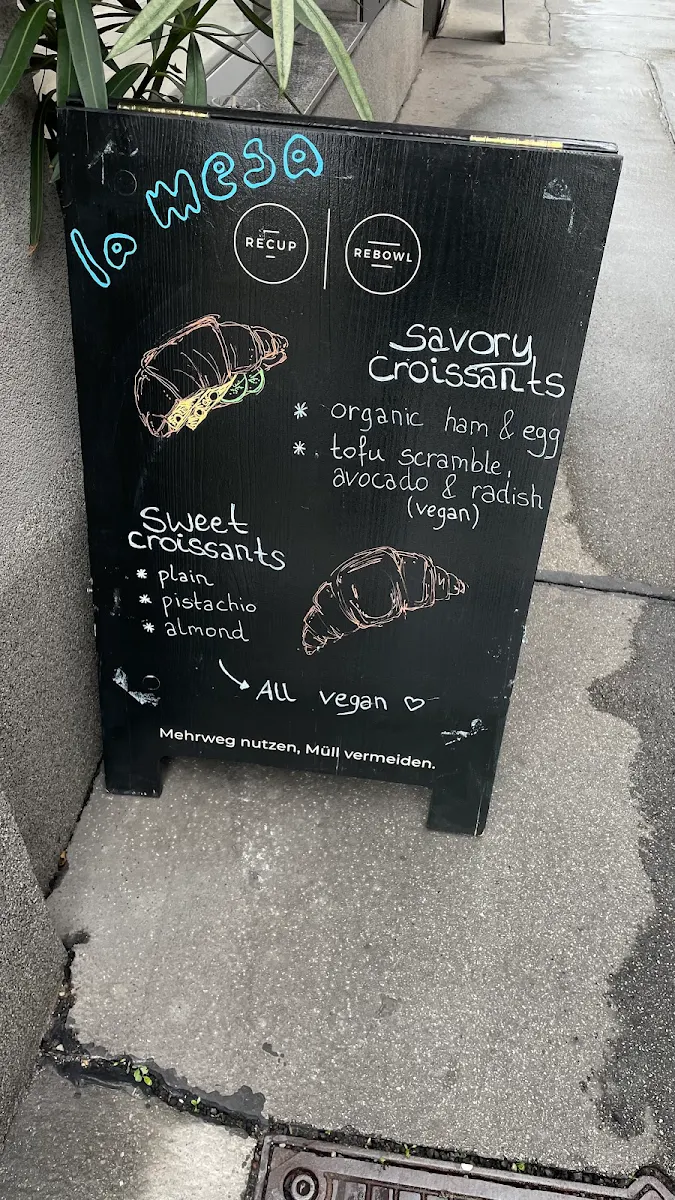 la mesa
RECUP | REBOWL
savory
croissants
* organic ham & egg
* tofu scramble,
avocado & radish
(vegan)
sweet
croissants
* plain
* pistachio
* almond
All vegan ♡
Mehrweg nutzen, Müll vermeiden.